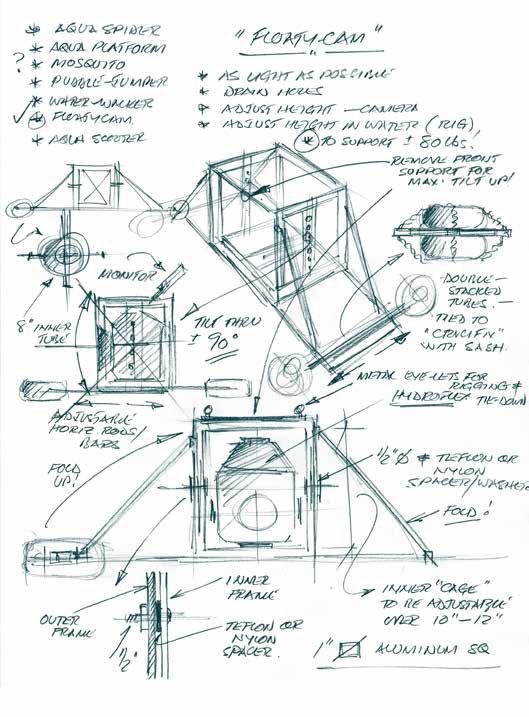 AQUA SPIDER
AQUA PLATFORM
? MOSQUITO
PUDDLE-JUMPER
WATER-WALKER
FLOATYCAM
AQUA SCOOTER
"FLOATY-CAM"
AS LIGHT AS POSSIBLE
DRAIN HOLES
ADJUST HEIGHT — CAMERA
ADJUST HEIGHT IN WATER (RIG)
TO SUPPORT ± 80 LBS!
REMOVE FRONT
SUPPORT FOR
MAX. TILT UP!
MONITOR
8" INNER
TUBE
TILT THRU
± 90°
DOUBLE-
STACKED
TUBES. —
TIED TO
"CRUCIFIX"
WITH SASH.
ADJUSTABLE
HORIZ. RODS/
BARS
METAL EYE-LETS FOR
RIGGING &
HYDROFLEX TIE-DOWN
FOLD
UP!
1/2" Ø
TEFLON OR
NYLON
SPACER/WASHER
FOLD!
OUTER
FRAME
1/2"
INNER
FRAME
TEFLON OR
NYLON
SPACER.
INNER "CAGE"
TO BE ADJUSTABLE
OVER 10"–12"
1" ALUMINUM SQ